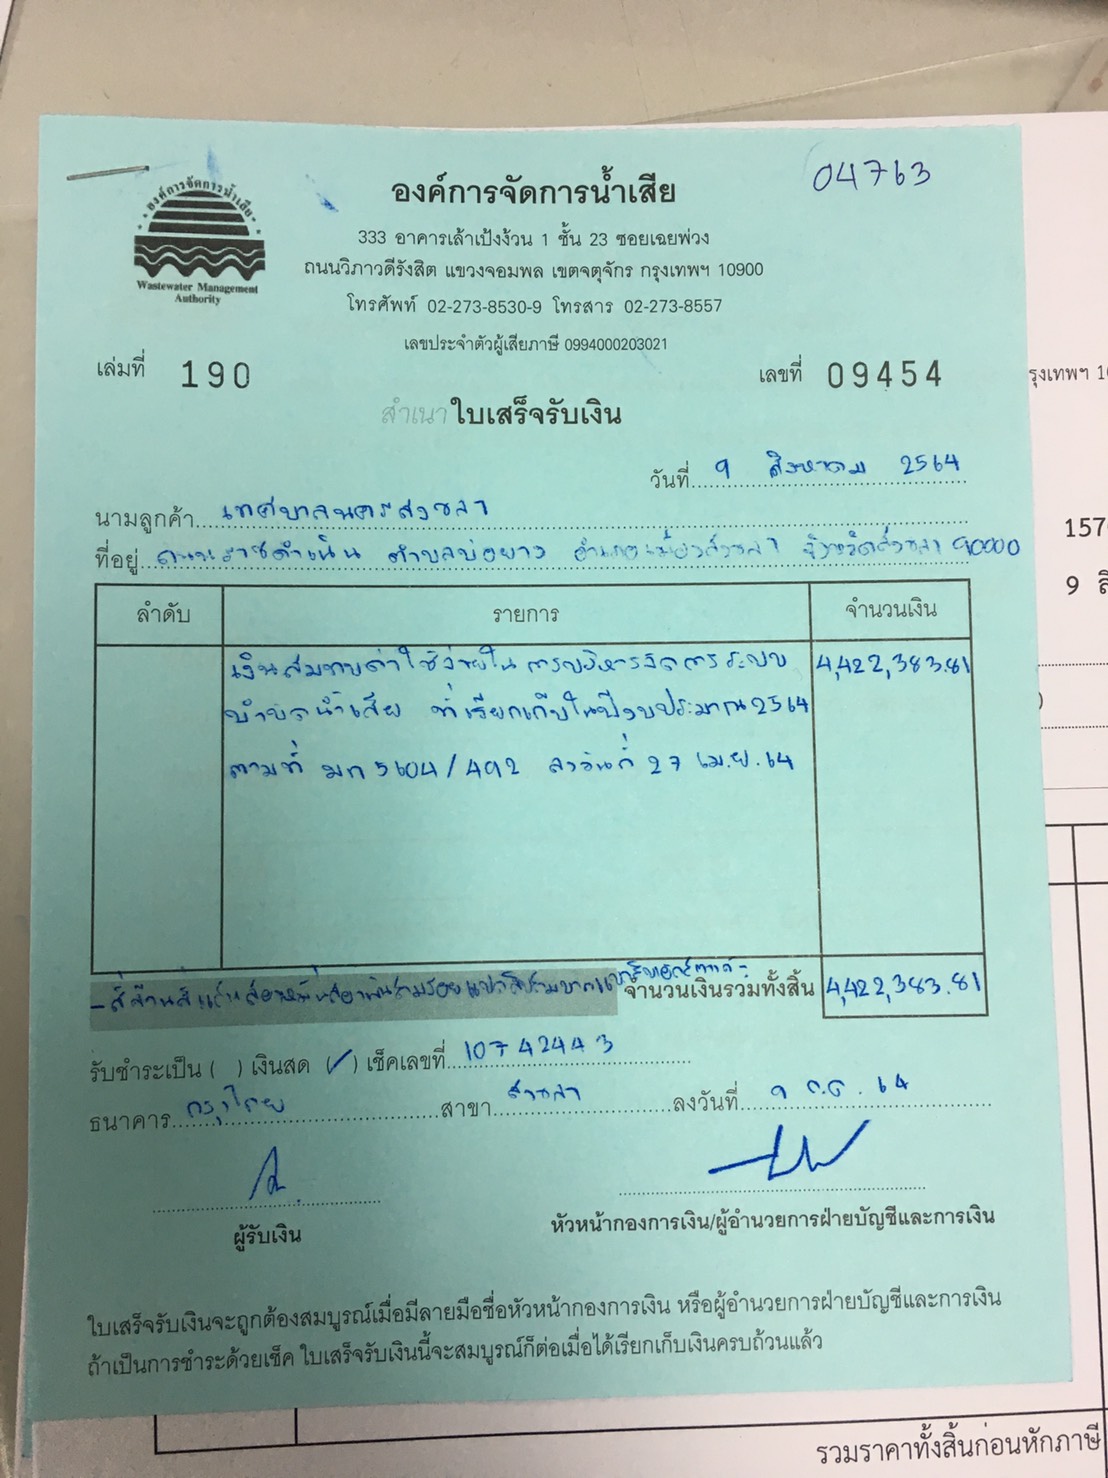 04763
องค์การจัดการน้ำเสีย
องค์การจัดการน้ำเสีย
Wastewater Management
Authority
333 อาคารเล้าเป้งง้วน 1 ชั้น 23 ซอยเฉยพ่วง
ถนนวิภาวดีรังสิต แขวงจอมพล เขตจตุจักร กรุงเทพฯ 10900
โทรศัพท์ 02-273-8530-9 โทรสาร 02-273-8557
เลขประจำตัวผู้เสียภาษี 0994000203021
เล่มที่ 190 เลขที่ 09454
รุงเทพฯ 10
สำเนาใบเสร็จรับเงิน
วันที่ 9 สิงหาคม 2564
นามลูกค้า เทศบาลนครสงขลา
157
ที่อยู่ ถนนราชดำเนิน ตำบลบ่อยาง อำเภอเมืองสงขลา จังหวัดสงขลา 90000
9 สิ
ลำดับ รายการ จำนวนเงิน
เงินสมทบค่าใช้จ่ายในการบริหารจัดการระบบ 4,422,383.81
บำบัดน้ำเสีย ที่เรียกเก็บในปีงบประมาณ 2564
ตามที่ มท 5604/492 ลงวันที่ 27 เม.ย. 64
-สี่ล้านสี่แสนสองหมื่นสองพันสามร้อยแปดสิบสามบาทแปดสิบเอ็ดสตางค์- จำนวนเงินรวมทั้งสิ้น 4,422,383.81
รับชำระเป็น ( ) เงินสด (✓) เช็คเลขที่ 10742443
ธนาคาร กรุงไทย สาขา สงขลา ลงวันที่ 9 ก.ค. 64
ผู้รับเงิน หัวหน้ากองการเงิน/ผู้อำนวยการฝ่ายบัญชีและการเงิน
ใบเสร็จรับเงินจะถูกต้องสมบูรณ์เมื่อมีลายมือชื่อหัวหน้ากองการเงิน หรือผู้อำนวยการฝ่ายบัญชีและการเงิน
ถ้าเป็นการชำระด้วยเช็ค ใบเสร็จรับเงินนี้จะสมบูรณ์ก็ต่อเมื่อได้เรียกเก็บเงินครบถ้วนแล้ว
รวมราคาทั้งสิ้นก่อนหักภาษี